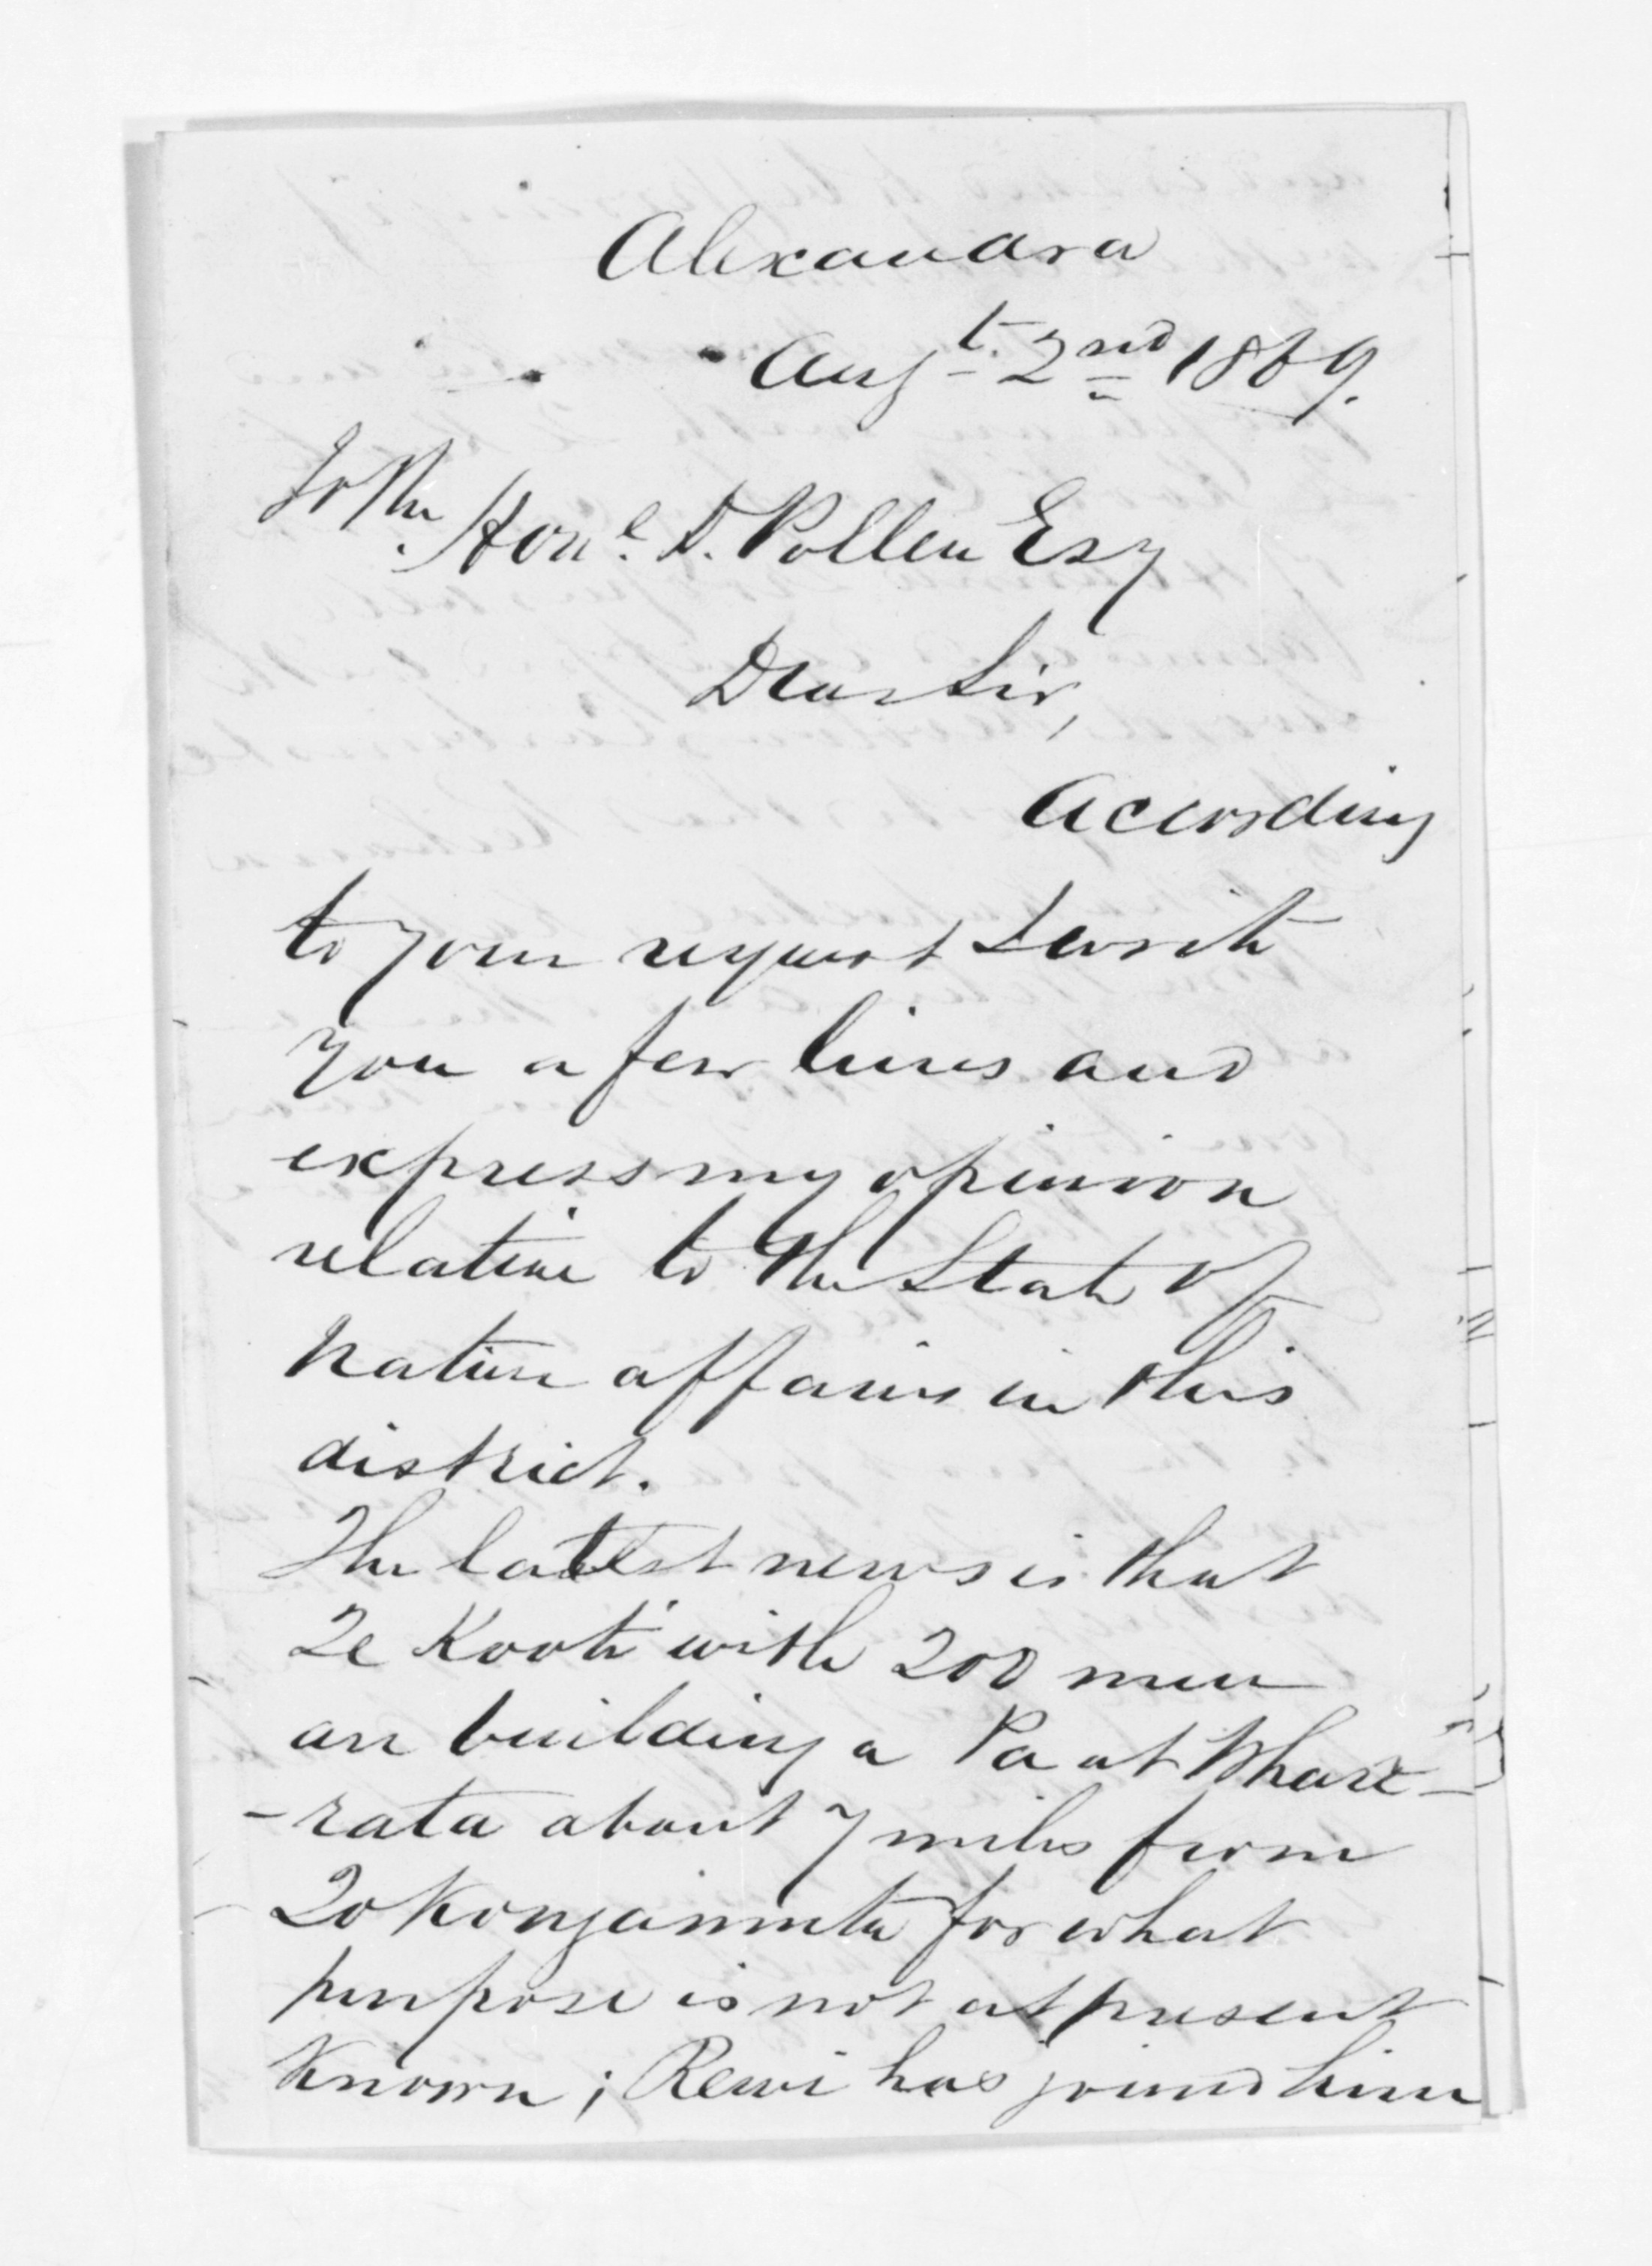 Alexandra
Augt. 2nd 1869.
To the
Honl. D. Pollen Esq
Dear Sir,
According
to your request I write
you a few lines and
express my opinion
relative to the State of
Native affairs in this
district.
The latest news is that
Te Kooti with 200 men
are building a Pa at Whare-
-rata about 7 miles from
Tokongamutu for what
purpose is not at present
Known; Rewi has joined him